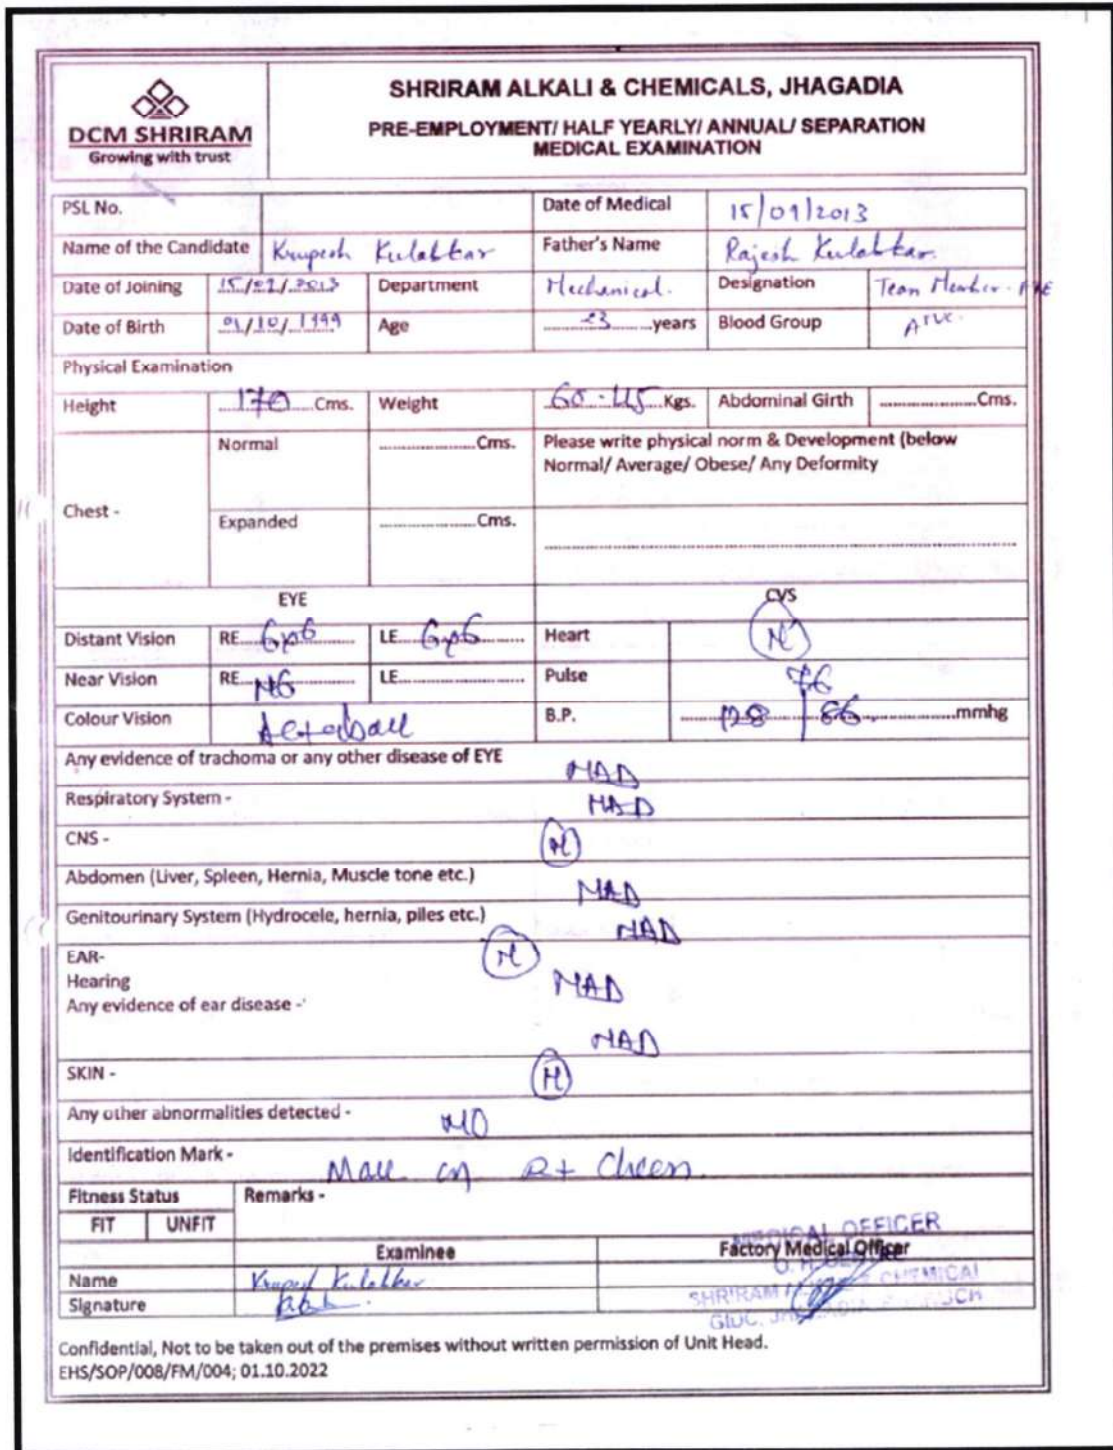 DCM SHRIRAM
Growing with trust
SHRIRAM ALKALI & CHEMICALS, JHAGADIA
PRE-EMPLOYMENT/ HALF YEARLY/ ANNUAL/ SEPARATION
MEDICAL EXAMINATION
PSL No. Date of Medical 15/09/2013
Name of the Candidate Krupesh Kulabkar Father's Name Rajesh Kulabkar.
Date of Joining 15/ /2013 Department Mechanical. Designation Team Member-
Date of Birth 01/10/1999 Age 23 years Blood Group A+ve.
Physical Examination
Height 170 Cms. Weight 60.45 Kgs. Abdominal Girth Cms.
Normal Cms. Please write physical norm & Development (below
Normal/ Average/ Obese/ Any Deformity
Chest -
Expanded Cms.
EYE CVS
Distant Vision RE 6/6 LE 6/6 Heart N
Near Vision RE N6 LE Pulse 76
Colour Vision B.P. 128/86 mmhg
Any evidence of trachoma or any other disease of EYE NAD
Respiratory System - NAD
CNS - N
Abdomen (Liver, Spleen, Hernia, Muscle tone etc.) NAD
Genitourinary System (Hydrocele, hernia, piles etc.) NAD
EAR- N
Hearing NAD
Any evidence of ear disease -
NAD
SKIN - N
Any other abnormalities detected - NO
Identification Mark - on Rt
Fitness Status Remarks -
FIT UNFIT
MEDICAL OFFICER
Examinee Factory Medical Officer
Name Krupesh Kulabkar
Signature
SHRIRAM CHEMICAL
Confidential, Not to be taken out of the premises without written permission of Unit Head.
EHS/SOP/008/FM/004; 01.10.2022